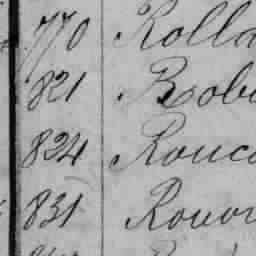 770 Rolla
821 Robi
824 Rouca
831 Rouor